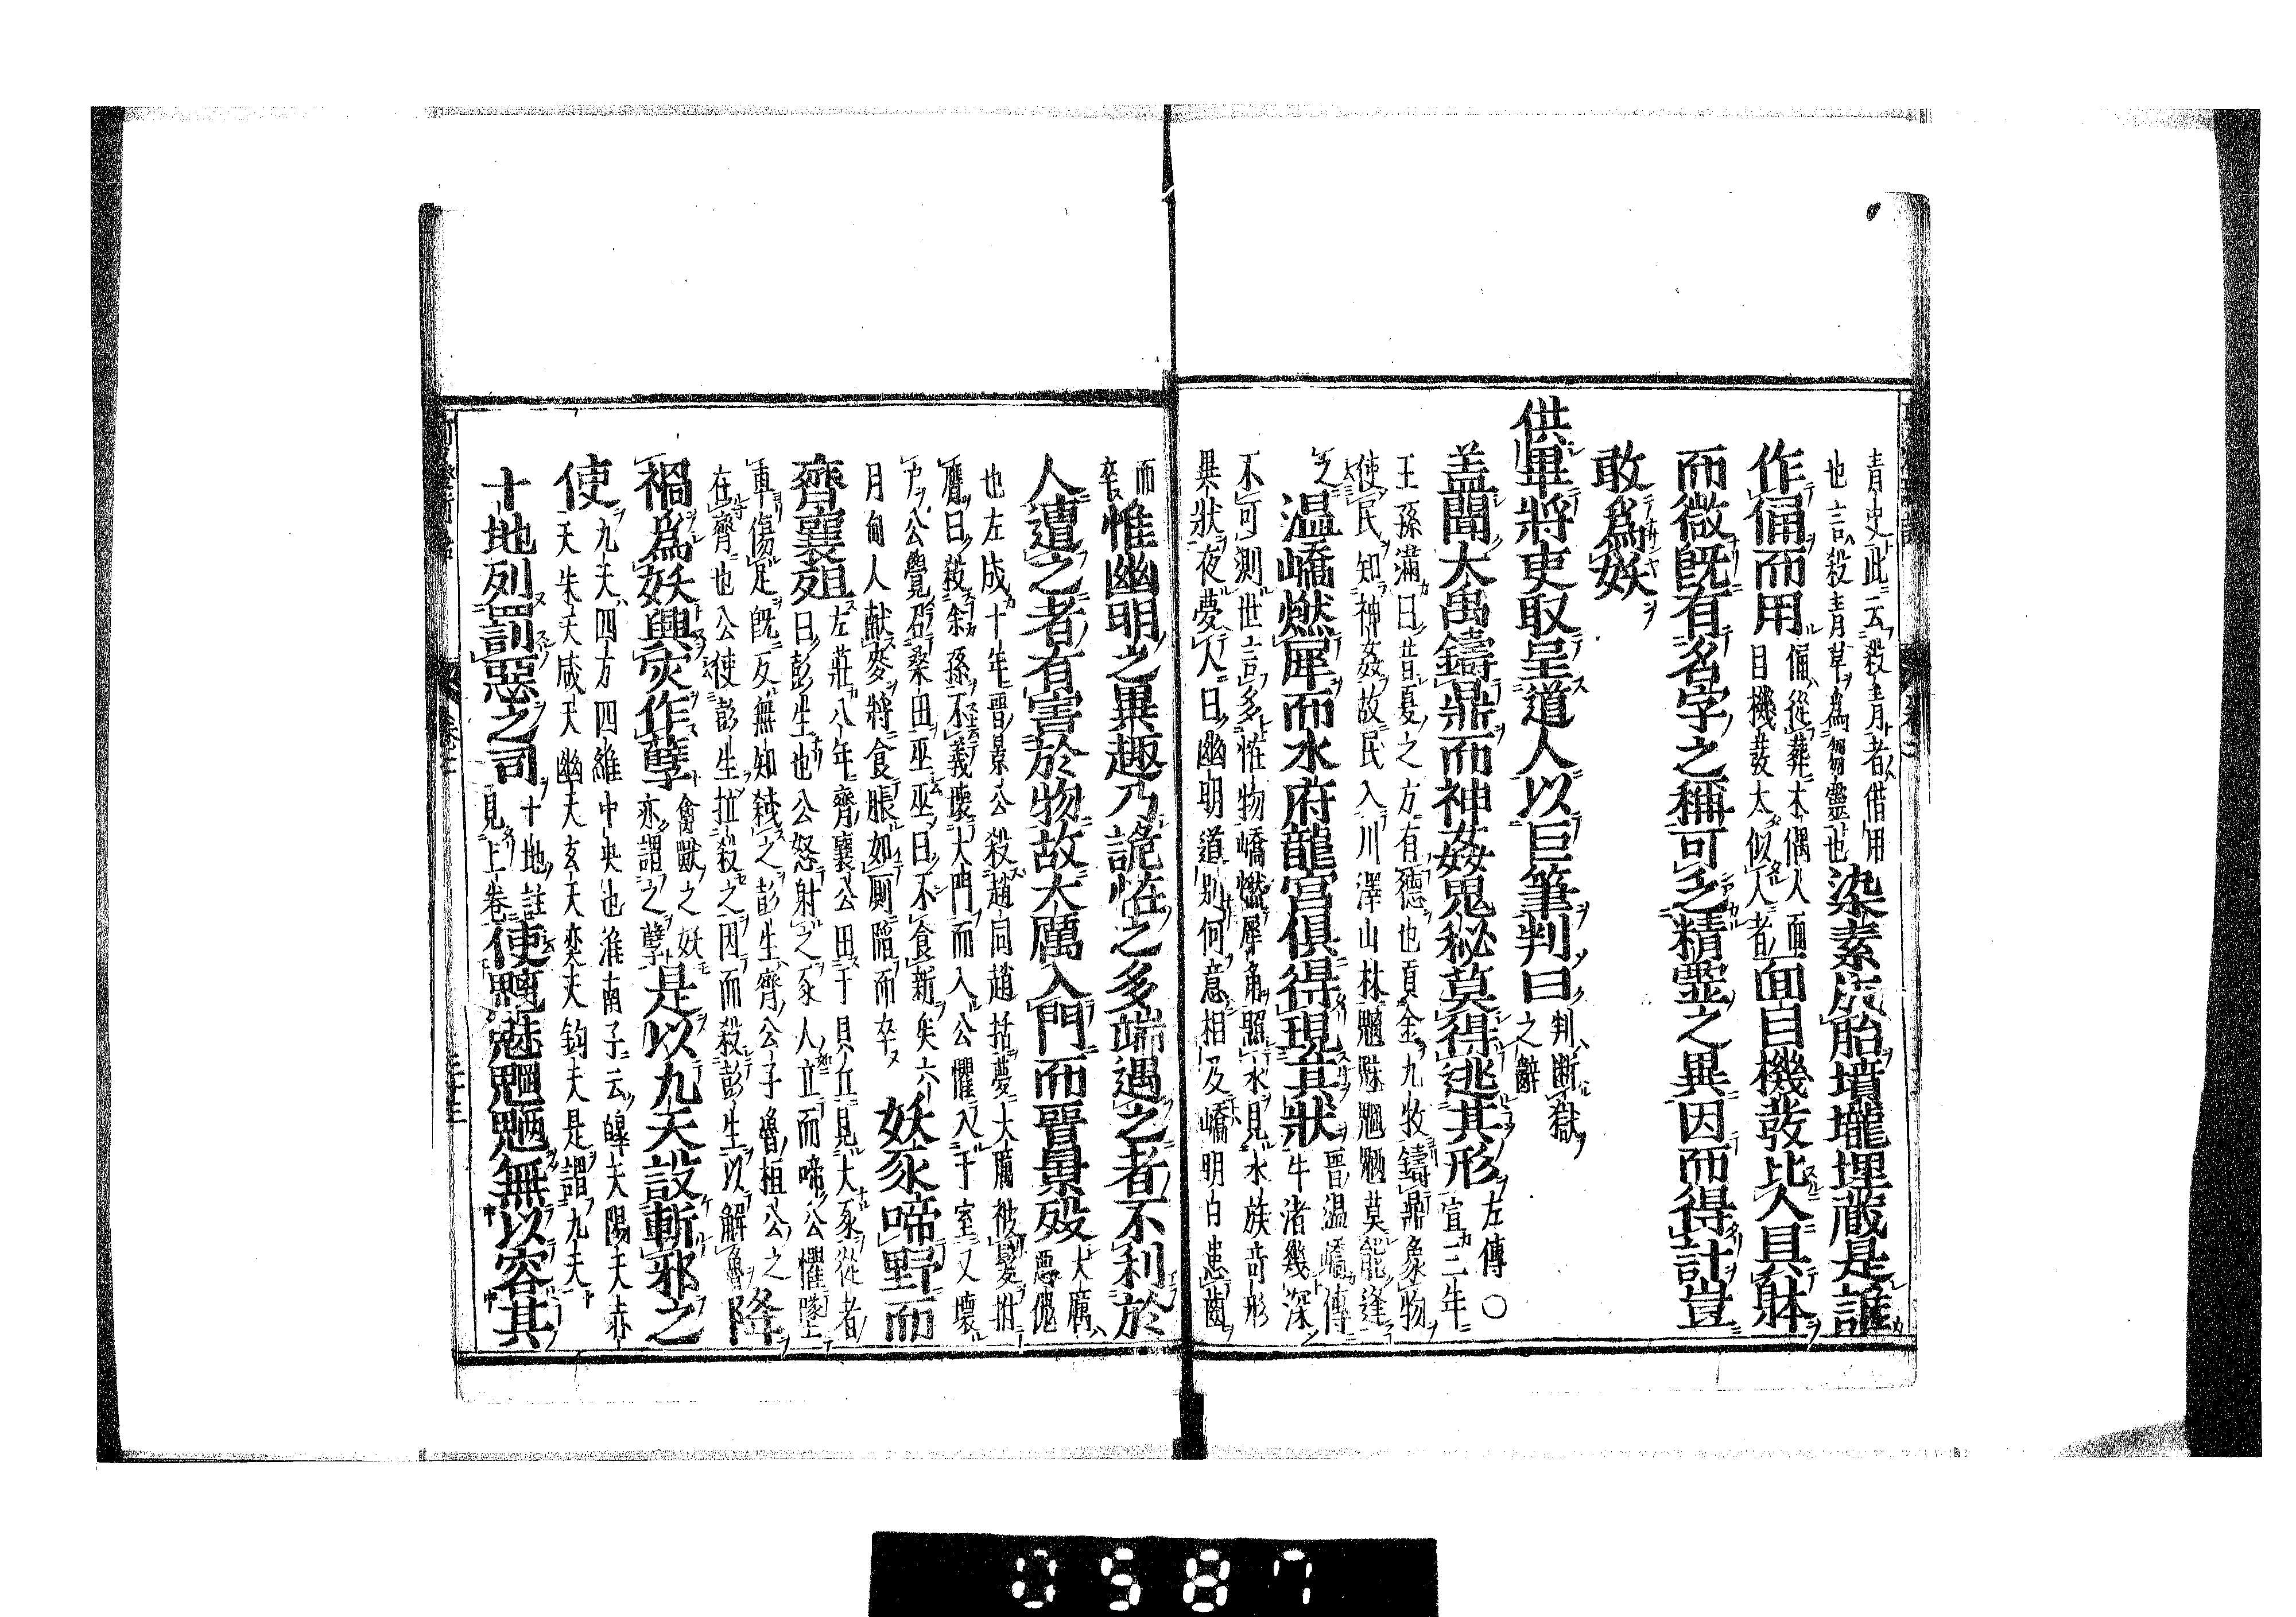 青史此云殺青者借用
也言殺青草為芻靈也
染素成胎墳壠埋蔵是誰
作俑而用
俑從葬木偶人面
目機發太似人者
面目機發比人具體
而微既有名字之稱可乏精靈之異因而得計豈
敢為妖
供畢將吏取呈道人以巨筆判曰
判斷獄
之辭
盖聞大禹鑄鼎而神姦鬼秘莫得逃其形
左傳○
宣三年
王孫滿曰昔夏之方有德也貢金九牧鑄鼎象物
使民知神姦故民入川澤山林魑魅魍魎莫能逢
之
温嶠燃犀而水府龍宮俱得現其狀
晋温嶠傳
牛渚幾深
不可測世言多怪物嶠燃犀角照水見水族奇形
異狀夜夢人曰幽明道別何意相及嶠明白患齒
而
卒
惟幽明之異趣乃詭怪之多端遇之者不利於
人遭之者有害於物故大厲入門而晋景歿
大厲
惡鬼
也左成十年晋景公殺趙同趙括夢大厲被髮拊
膺曰殺余孫不義壊大門而入公懼入于室又壊
戸公覺召桑田巫巫曰不食新矣六
月甸人獻麥將食脹如厠陷而卒
妖豕啼野而
齊襄殂
左莊八年齊襄公田于貝丘見大豕從者
曰彭生也公怒射之豕人立而啼公懼墜
車傷足既反無知弑之彭生齊公子魯桓公之
在齊也公使彭生拉殺之因而殺彭生以解魯
降
禍為妖興灾作孽
禽獸之妖
亦謂之孽
是以九天設斬邪之
使
九天四方四維中央也淮南子云皥天陽天赤
天朱天成天幽天玄天奕天鈞天是謂九天
十地列罰惡之司
十地註
見上卷
使魑魅魍魎無以容其